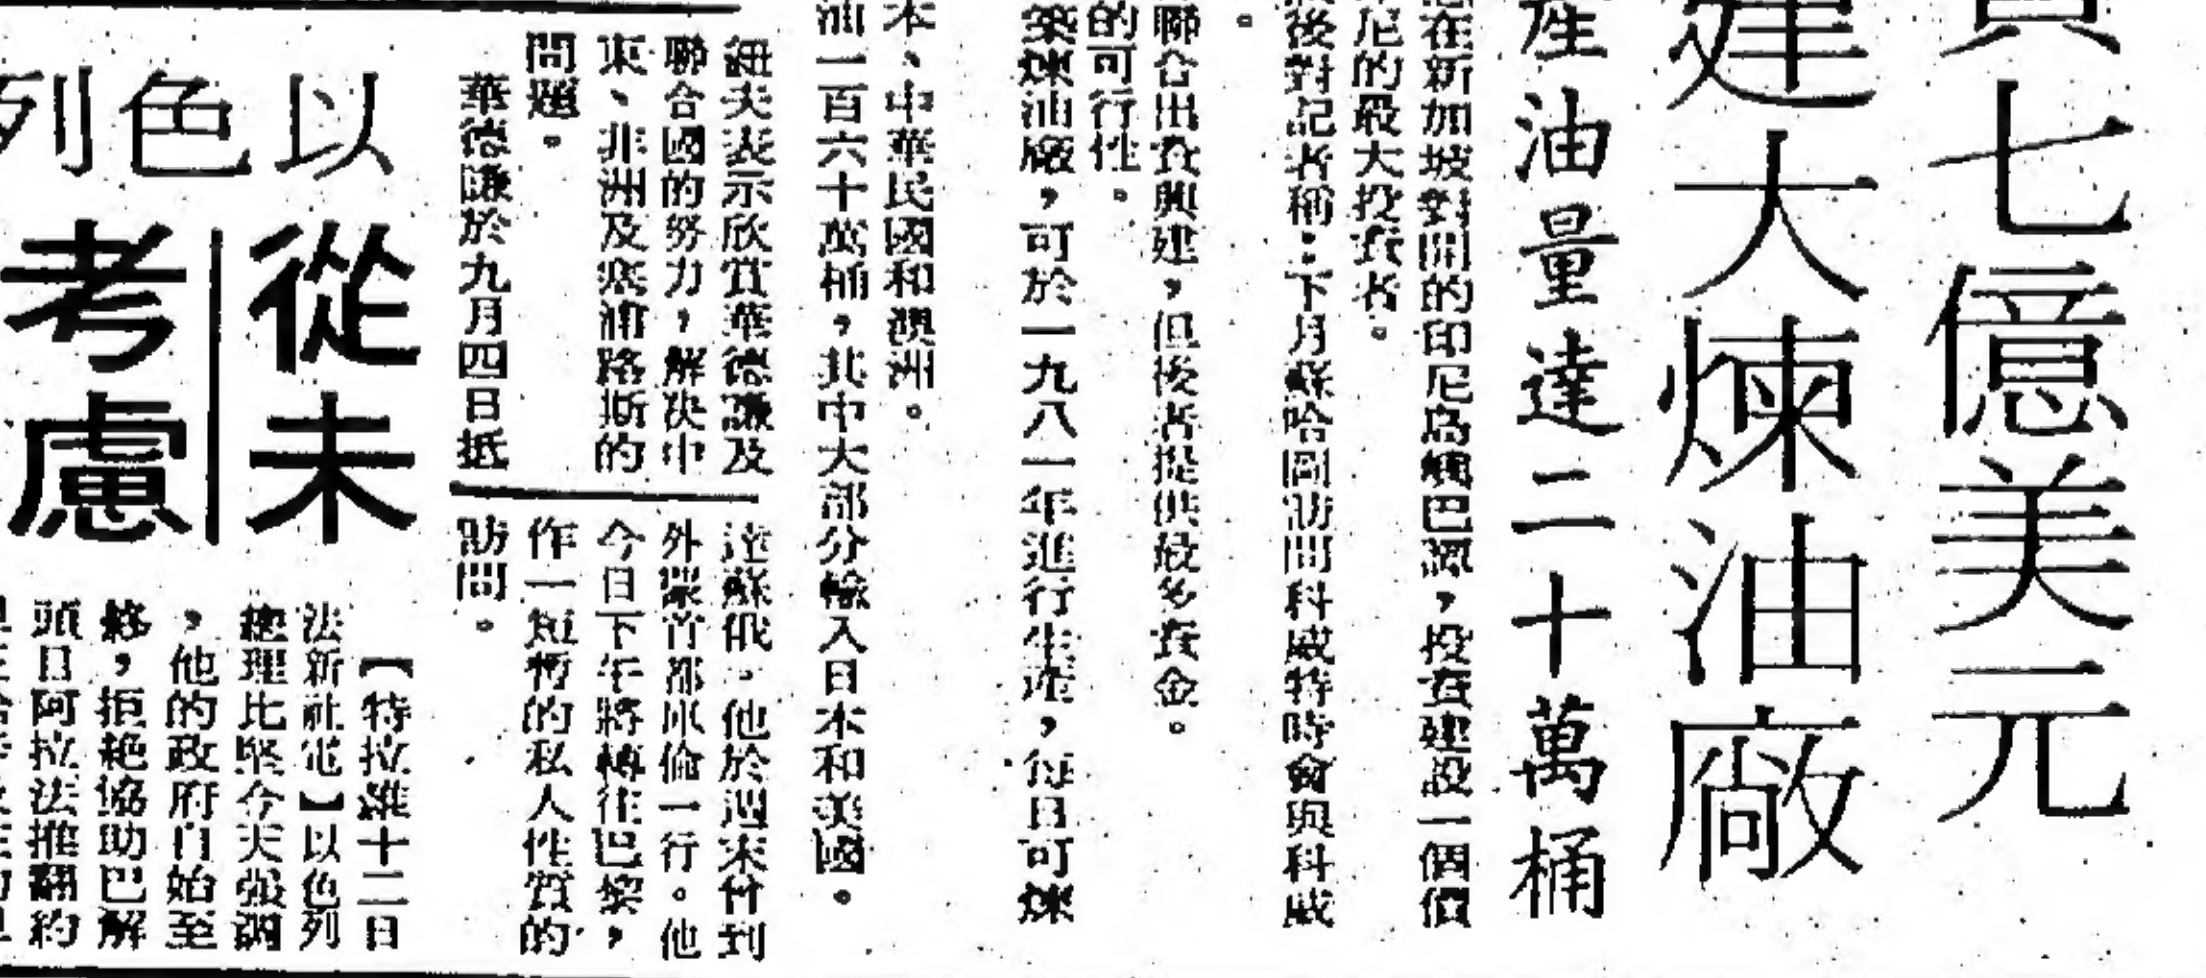 七億美元
建大煉油廠
產油量達二十萬桶
在新加坡對開的印尼烏巴，投資建設一個價
尼的最大投資者。
後對記者稱：下月蘇哈圖訪問科威特時會與科威
。
聯合出資興建，但後者提供最多資金。
的可行性。
築煉油廠，可於一九八一年進行生產，每日可煉
本、中華民國和澳洲。
油一百六十萬桶，其中大部分輸入日本和美國。
紐夫表示欣賞華德謙及
聯合國的努力，解决中
東、非洲及塞浦路斯的
問題。
華德謙於九月四日抵
達蘇俄。他於週末曾到
外蒙首都庫倫一行。他
今日下午將轉往巴黎，
作一短暫的私人性質的
訪問。
以色列
從未
考慮
【特拉維十二日
法新社電】以色列
總理比堅今天強調
，他的政府自始至
終，拒絕協助巴解
頭目阿拉法推翻約